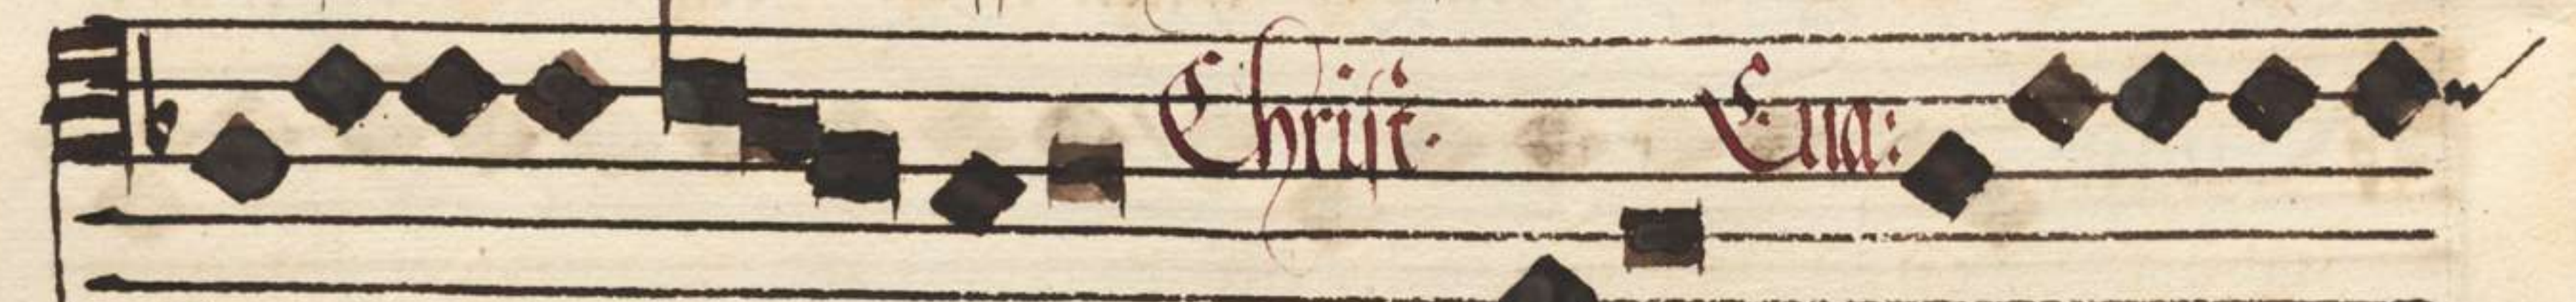 Christ. Eua: